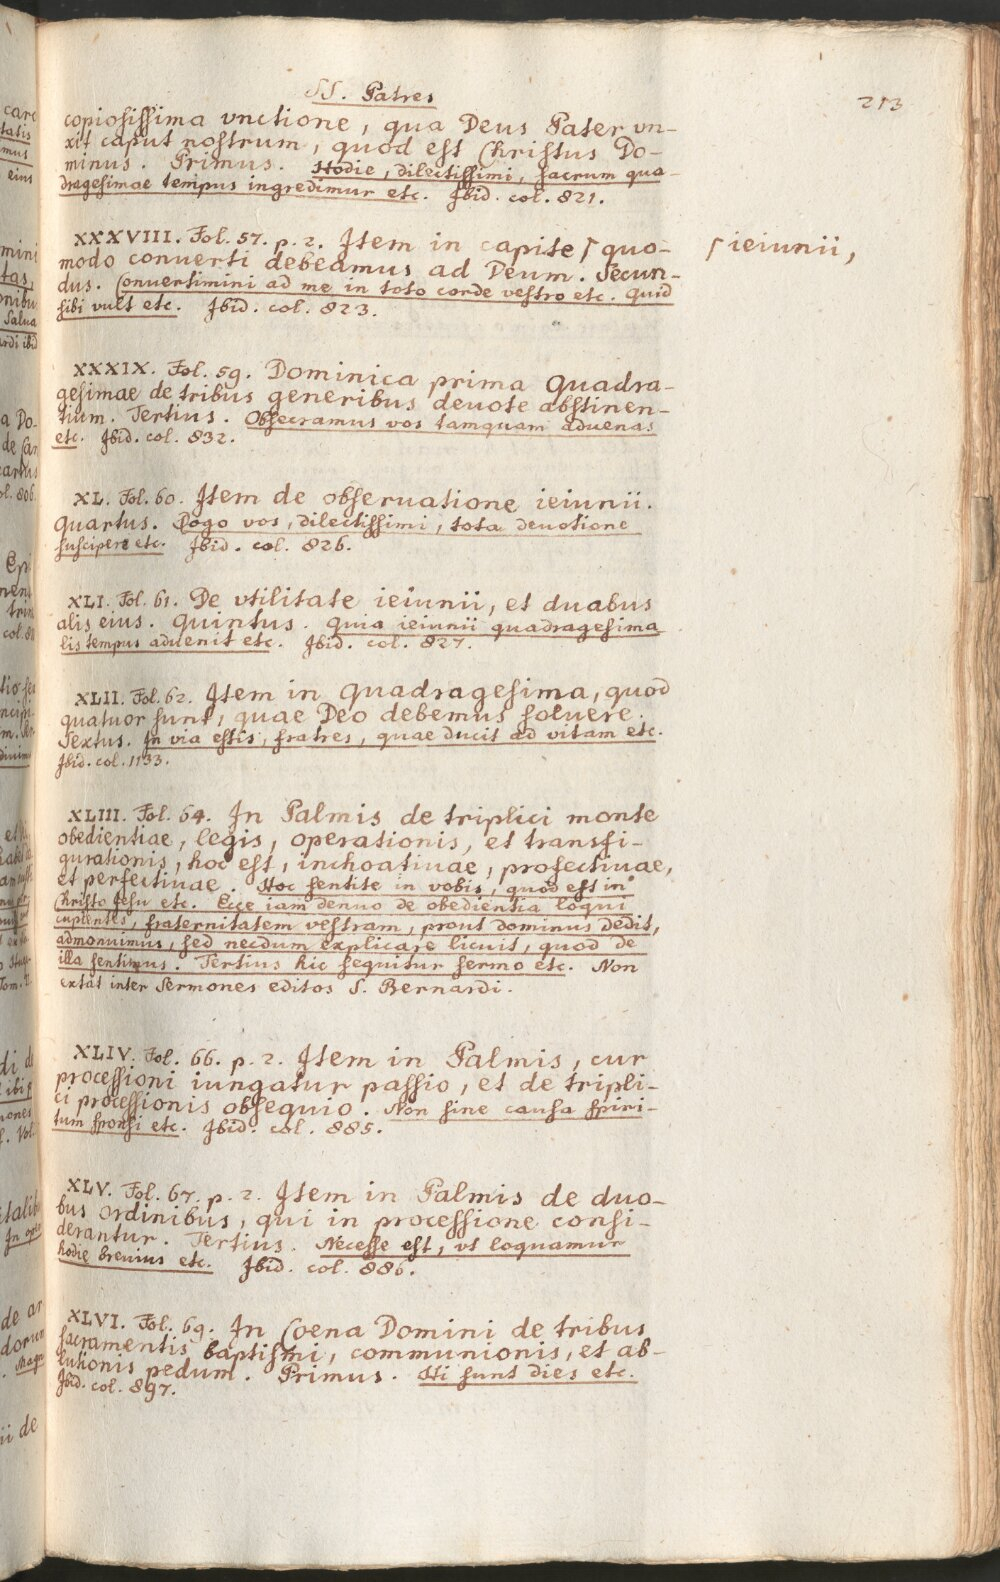 SS. Patres
213
copiosissima vnctione, qua Deus Pater vn-
xit caput nostrum, quod est Christus Do-
minus. Primus. Hodie, dilectissimi, sacrum qua-
dragesimae tempus ingredimur etc. Ibid. col. 821.
XXXVIII. Fol. 57. p. 2. Item in capite ⌈ quo-
⌈ ieiunii,
modo conuerti debeamus ad Deum. Secun-
dus. Conuertimini ad me in toto corde vestro etc. Quid
sibi vult etc. Ibid. col. 823.
XXXIX. Fol. 59. Dominica prima Quadra-
gesimae de tribus generibus deuote abstinen-
tium. Tertius. Obsecramus vos tamquam aduenas
etc. Ibid. col. 832.
XL. Fol. 60. Item de obseruatione ieiunii.
Quartus. Rogo vos, dilectissimi, tota deuotione
suscipere etc. Ibid. col. 826.
XLI. Fol. 61. De vtilitate ieiunii, et duabus
alis eius. Quintus. Quia ieiunii quadragesima
lis tempus aduenit etc. Ibid. col. 827.
XLII. Fol. 62. Item in Quadragesima, quod
quatuor sunt, quae Deo debemus soluere.
Sextus. In via estis, fratres, quae ducit ad vitam etc.
Ibid. col. 1133.
XLIII. Fol. 64. In Palmis de triplici monte
obedientiae, legis, operationis, et transfi-
gurationis, hoc est, inchoatiuae, profectiuae,
et perfectiuae. Hoc sentite in vobis, quod est in
Christo Iesu etc. Ecce iam denuo de obedientia loqui
cupientes, fraternitatem vestram, prout dominus dedit,
admonuimus, sed necdum explicare licuit, quod de
illa sentimus. Tertius hic sequitur sermo etc. Non
extat inter Sermones editos S. Bernardi.
XLIV. Fol. 66. p. 2. Item in Palmis, cur
processioni iungatur passio, et de tripli-
ci processionis obsequio. Non sine causa spiri-
tum sponsi etc. Ibid. col. 885.
XLV. Fol. 67. p. 2. Item in Palmis de duo-
bus ordinibus, qui in processione consi-
derantur. Tertius. Necesse est, vt loquamur
hodie breuius etc. Ibid. col. 886.
XLVI. Fol. 69. In Coena Domini de tribus
sacramentis baptismi, communionis, et ab-
lutionis pedum. Primus. Hi sunt dies etc.
Ibid. col. 897.